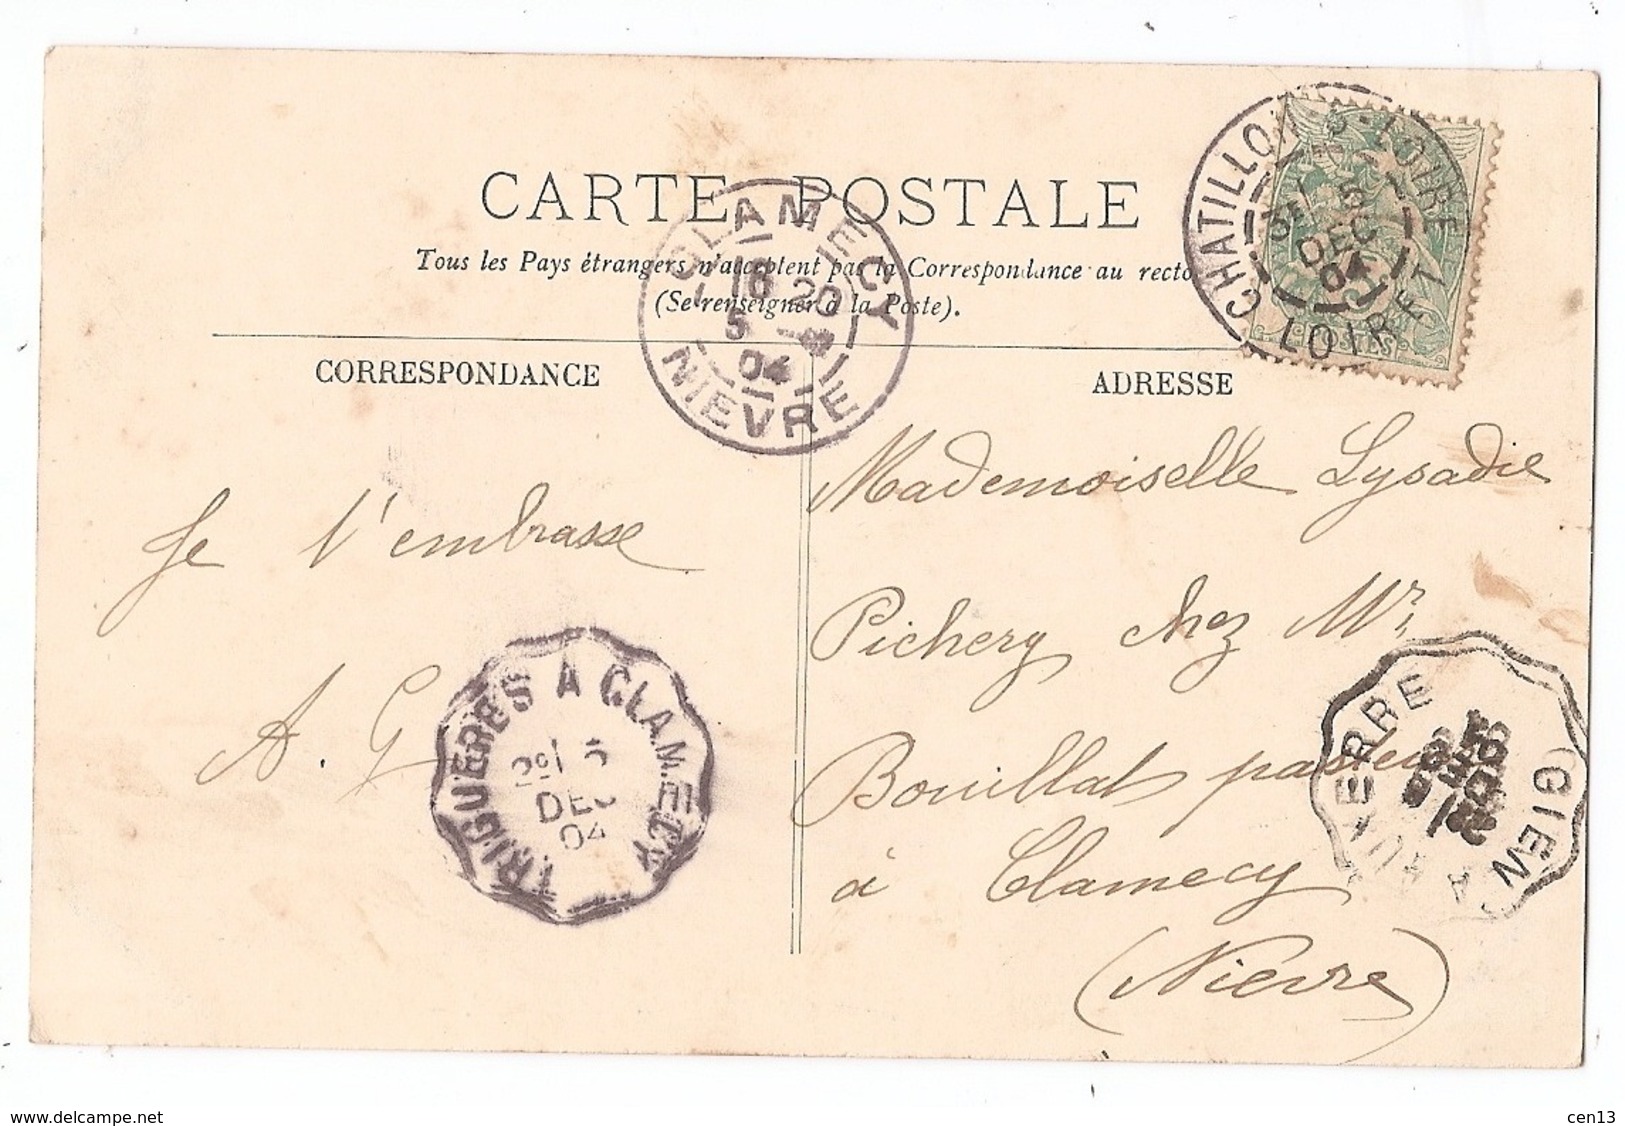 CARTE POSTALE
Tous les Pays étrangers n'acceptent pas la Correspondance au recto
(Se renseigner à la Poste).
CHATILLON-S-LOIRE
5
DEC
04
LOIRET
POSTES
CLAMECY
16 20
5
04
NIEVRE
CORRESPONDANCE
ADRESSE
Je t'embrasse
A. G
Mademoiselle Lysadie
Pichery chez Mr
Bouillat pasteur
à Clamecy
(Nièvre)
TRIGUERES A CLAMECY
DEC
04
GIEN A AUXERRE
www.delcampe.net
cen13